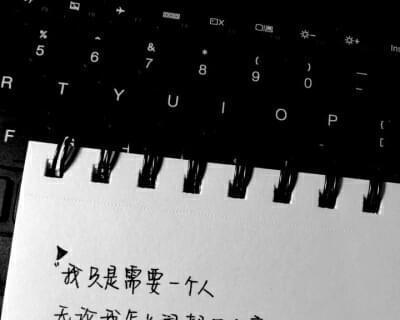 Ins
% ^ & * ( ) _
5 6 7 8 9 0
R T Y U I O P {
F [
"我只是需要一个人
无论我怎么